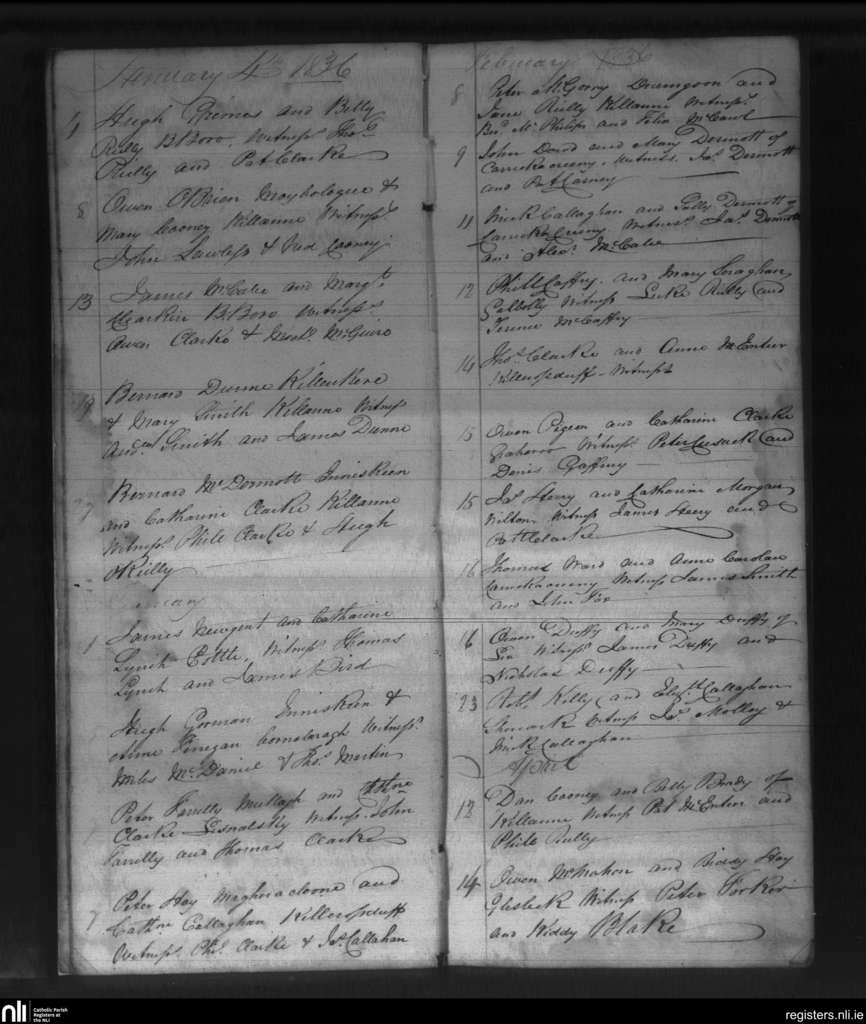 January 4th 1836
4 Hugh Grimes and Betty
Reilly B Boro. Witness Thos
Reilly and Pat Clarke
8 Owen O'Brien Moybologue &
Mary Cooney Killanne Witnesss
John Lawless & Ned Cooney
13 James McCabe and Margt
Clarkin B Boro Witnesss
Owen Clarke & McGuiro
19 Bernard Dunne Killenkere
& Mary Smith Killanne Witness
Smith and James Dunne
27 Bernard McDermott Inniskeen
and Catharine Clarke Killanne
Witnesss Phile Clarke & Hugh
O'Reilly
1 James Newgent and Catharine
Lynch Witness Thomas
Lynch and James Bird
Hugh Gorman Inniskeen &
Anne Finegan Witnesss
Miles McDaniel & Thos Martin
Peter Farrelly Mullagh and
Clarke Witness John
Farrelly and Thomas Clarke
7 Peter Hoy and
Cathne Callaghan
Witnesss Phil Clarke & Jas Callahan
February 1836
8 Peter McGorry Drumgoon and
Jane Reilly Killanne Witnesss
Bnd McPhilips and Felix McCaul
9 John Dowd and Mary Dermott of
Witness Jas Dermott
and Pat Carney
11 Mick Callaghan and Dermott of
Witness Jas Dermott
and Alexr McCabe
12 Phill Caffry and Mary
Witness Luke Reilly and
Terence McCaffry
14 Thos Clarke and Anne McEntier
Witness
15 Owen Pigeon and Catharine Clarke
Witness Peter Cusack and
Denis Gaffney
15 Jas and Catharine Morgan
Wilton Witness James and
Pat Clarke
16 Thomas Ward and Anne Carolan
Witness James Smith
and John Fox
16 Owen Duffy and Mary Duffy of
Witness James Duffy and
Nicholas Duffy
23 Robt Kelly and Elizth Callaghan
Witness Jas Molloy &
Mick Callaghan
April
12 Dan Cooney and Betty Brady of
Killanne Witness Pat McEntier and
Phile Reilly
14 Owen McMahon and Biddy Hoy
Witness Peter
and Biddy Blake
nli
Catholic Parish
Registers at
the NLI
registers.nli.ie